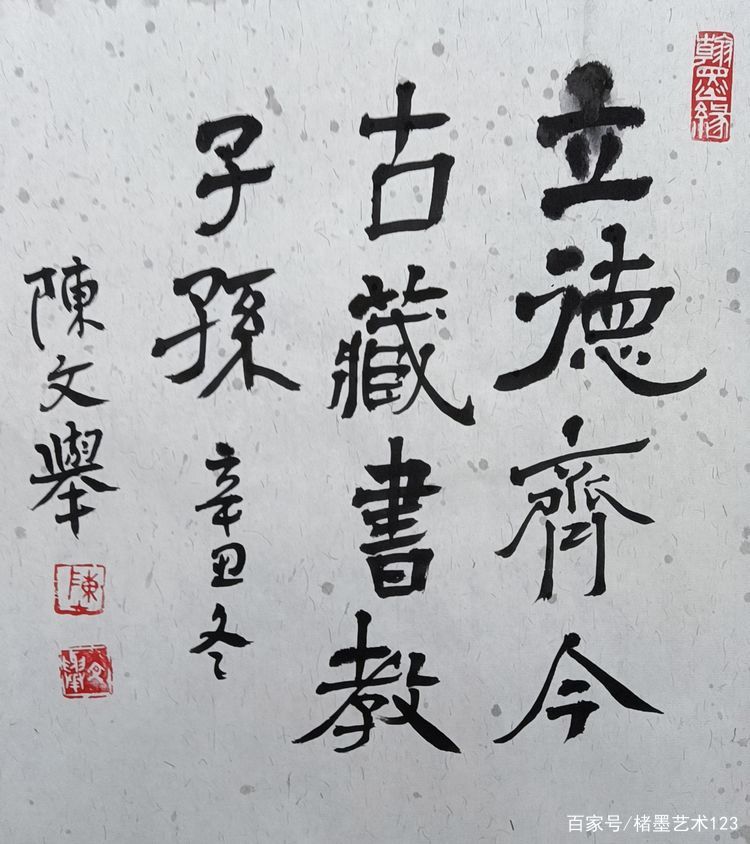 翰墨緣
立德齊今
古藏書教
子孫 辛丑冬
陳文舉
陳
文舉
百家号/楮墨艺术123